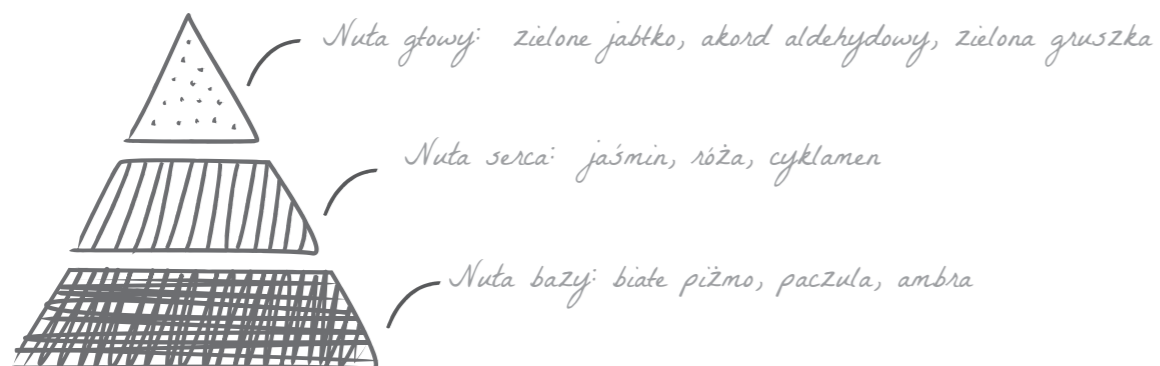 Nuta głowy: zielone jabłko, akord aldehydowy, zielona gruszka
Nuta serca: jaśmin, róża, cyklamen
Nuta bazy: białe piżmo, paczula, ambra